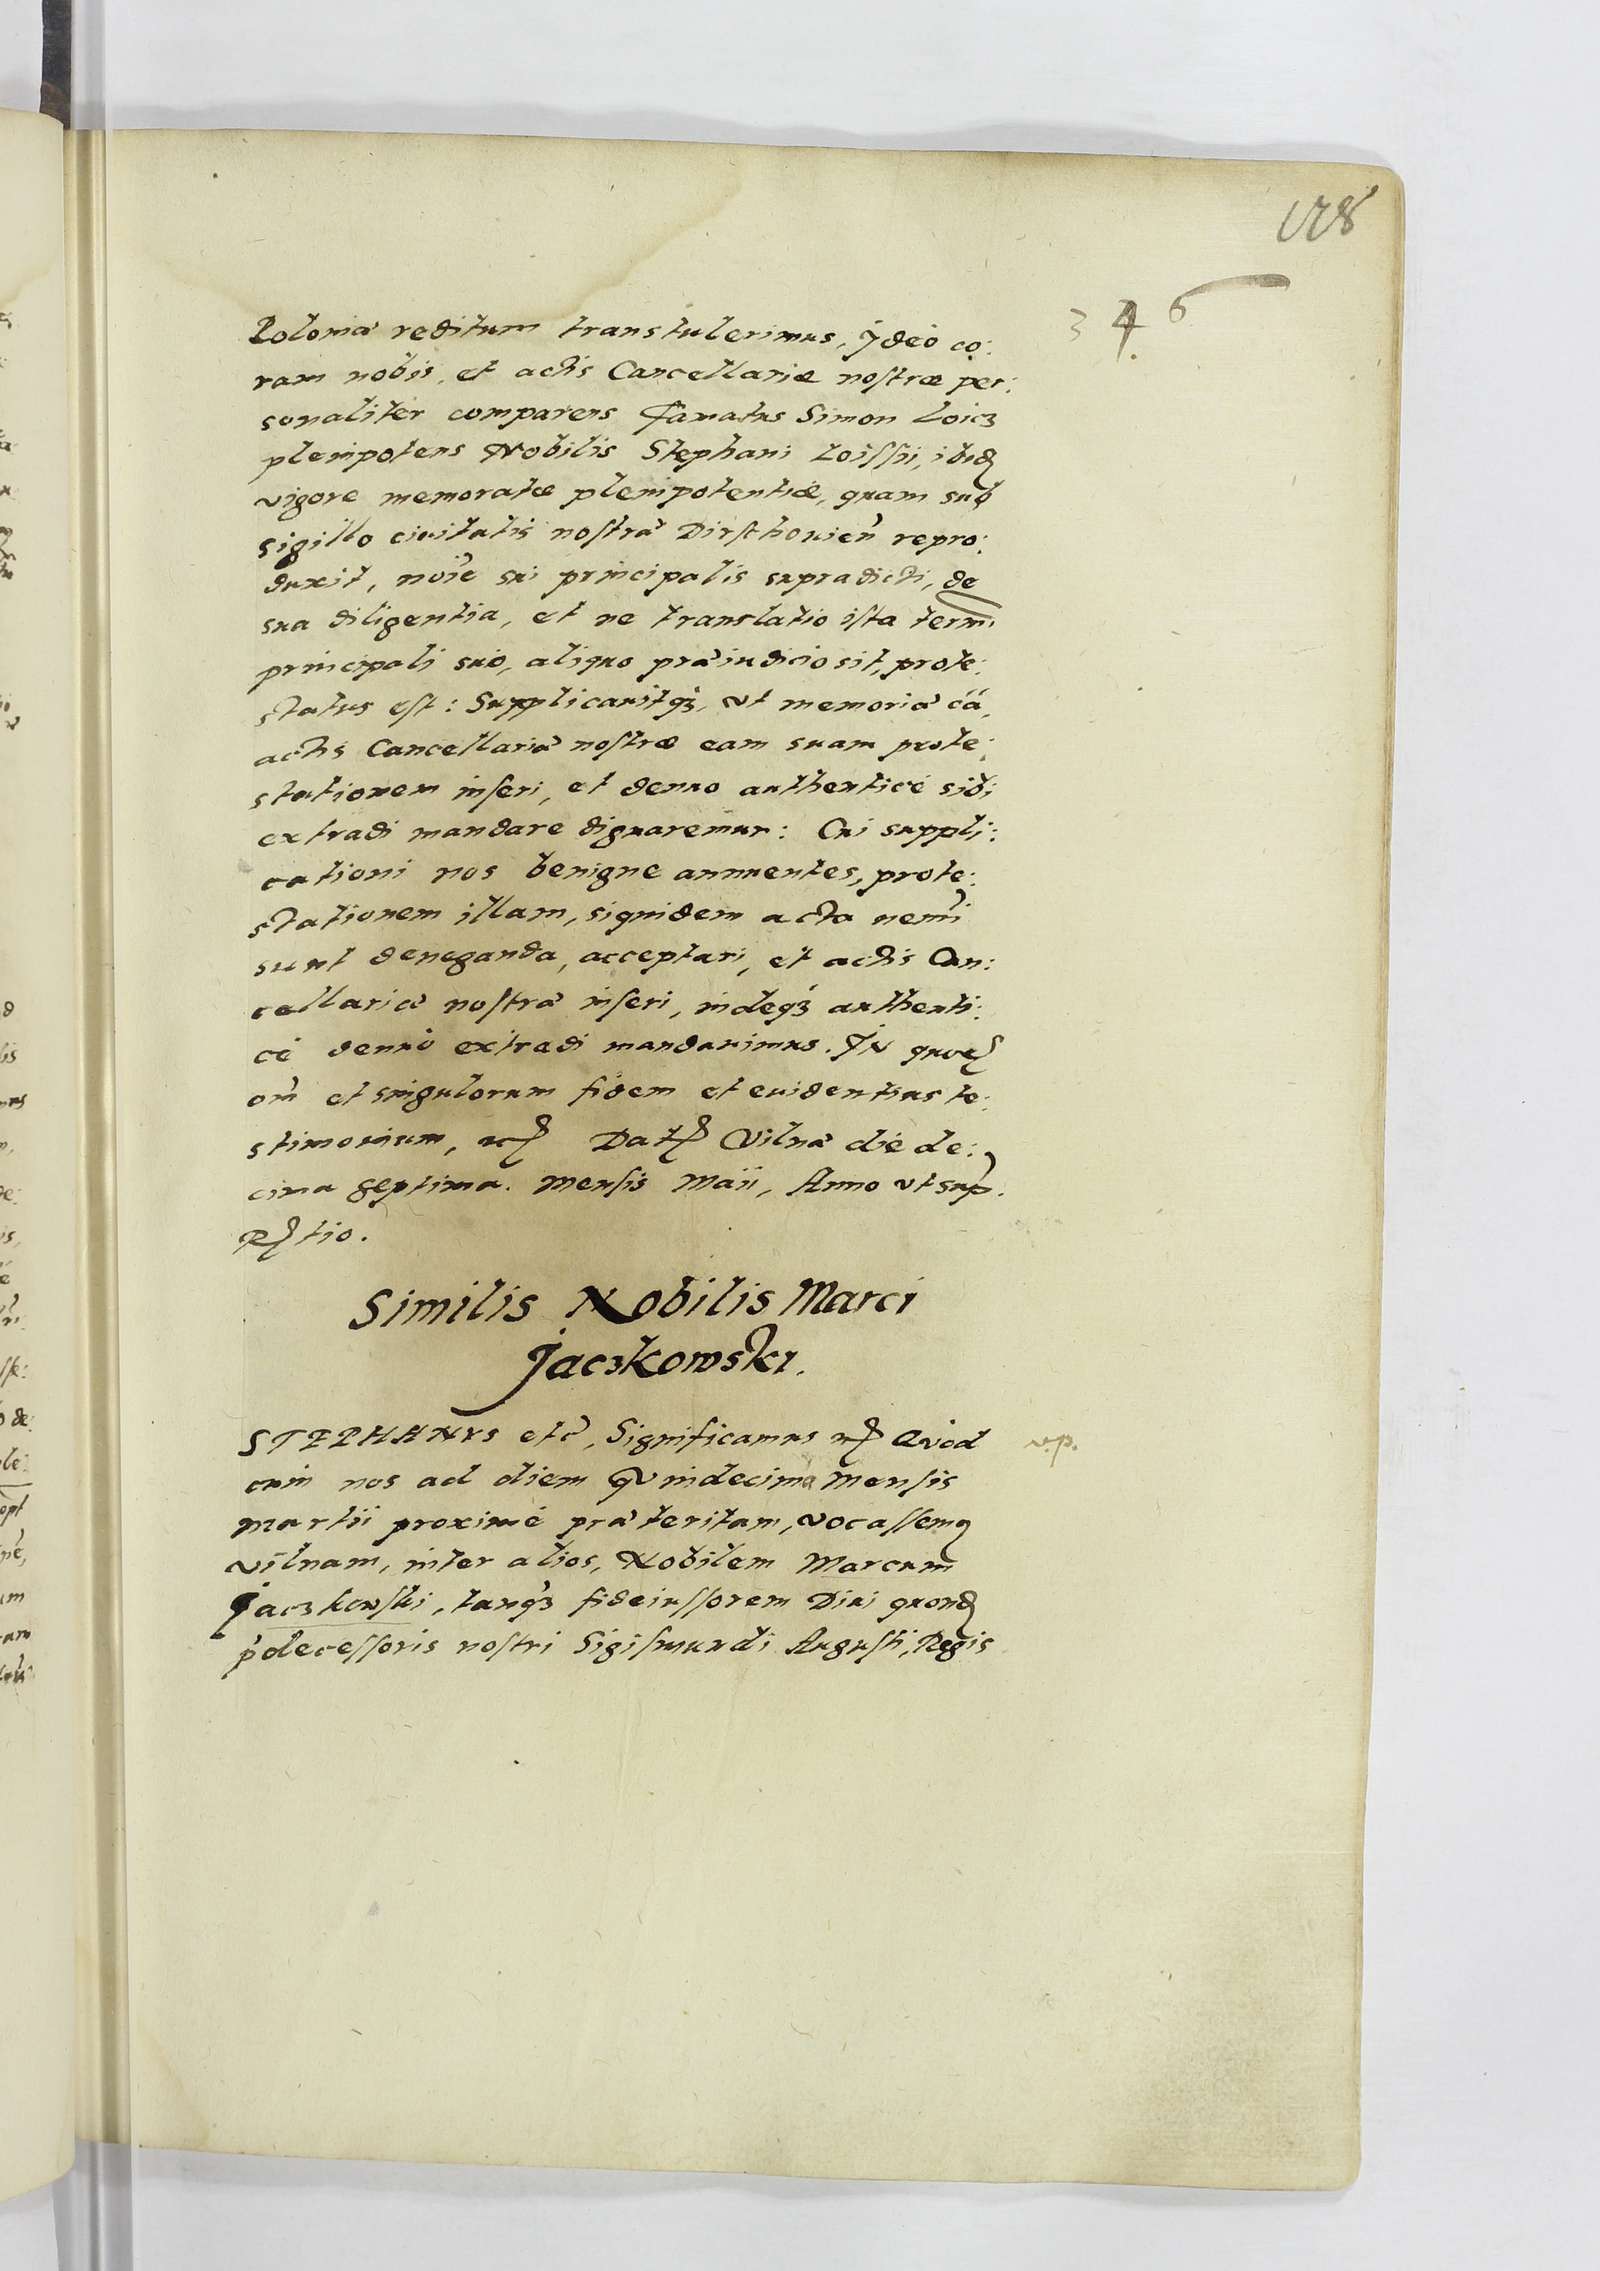 178
346
Poloniã reditum transtulerimus, Ideò co:
ram nobis, et actis Cancellariæ nostræ per:
sonaliter comparens Famatus Simon Loicz
plenipotens Nobilis Stephani Loissii, ibid
vigore memoratæ plenipotentiæ, quam sub
sigillo ciuitatis nostrã Dirsthouieñ repro:
duxit, noie sui principalis supradicti, de
sua diligentia, et ne translatio ista termi
principali suo, aliquo prã iudicio sit, prote:
status est: Supplicauitq3, vt memoriã cã,
actis Cancellariã nostræ eam suam prote:
stationem inseri, et denuo authenticè sibi
extradi mandare dignaremur: Cui suppli:
cationi nos benigne annuentes, prote:
stationem illam, siquidem acta nemi
sunt deneganda, acceptari, et actis Can:
cellariæ nostrã inseri, indeq3 authenti:
cè denuò extradi mandauimus. IN quor
om et singulorum fidem et euidentius te:
stimonium, Dat Vilnã die de:
cima septima. Mensis Maii, Anno vt sup.
R tio.
Similis Nobilis Marci
Jaczkowski.
STEPHANVS etc, Significamus Qvod
cum nos ad diem Qvindecima Mensis
Martii proximè prãteritam, vocassem
Vilnam, inter alios, Nobilem Marcum
Jaczkowski, tanq3 fideiussorem Diui quond
pdecessoris nostri Sigismundi Augusti, Regis
v.p.